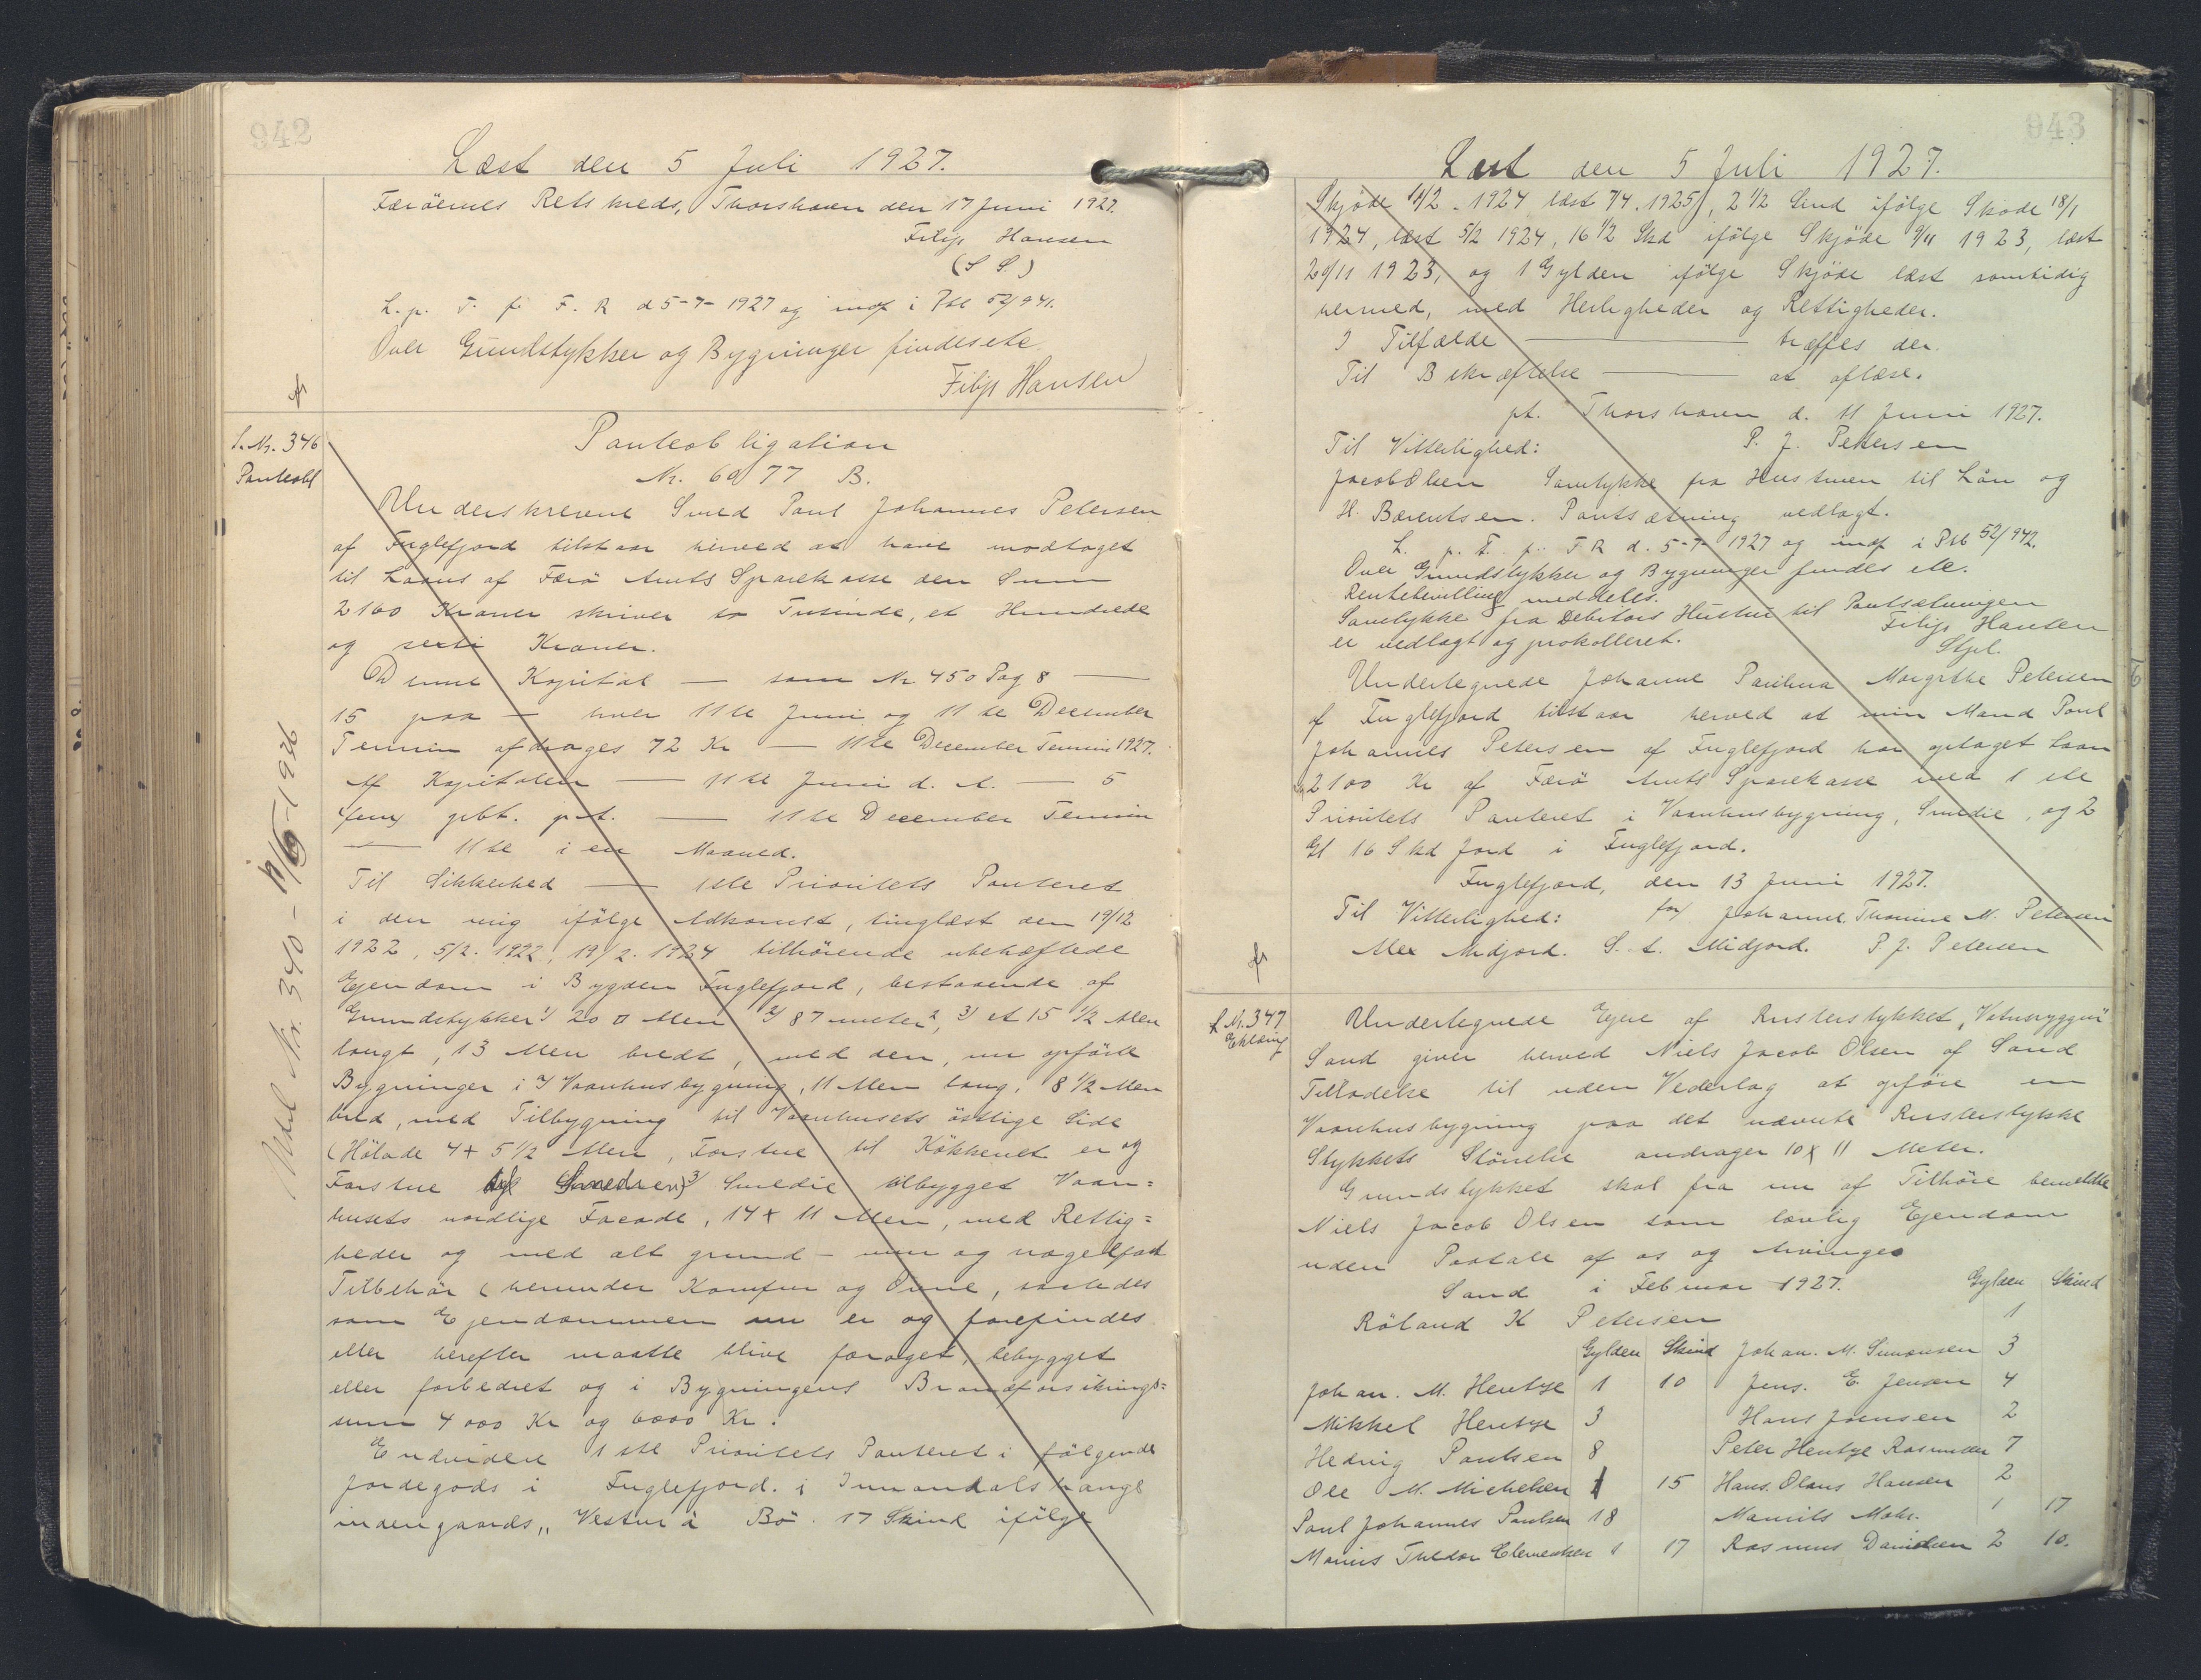 942
Læst den 5 Juli 1927.
Færöernes Retskreds, Thorshavn den 17 Juni 1927.
Filip Hansen
(S S.)
L. p. T. f. F. R d 5-7-1927 og indf i Pbl 52/941.
Over Grundstykker og Bygninger findes etc
Filip Hansen
L. Nr. 346
Panteobl
Panteobligation
Nr. 6977 B.
Underskrevne Smed Poul Johannes Petersen
af Fuglefjord tilstaar herved at have modtaget
til Laans af Færö Amts Sparekasse den Sum
2160 Kroner skriver to Tusinde, et Hundrede
og sexti Kroner.
Denne Kapital — som Nr 450 Pag 8 —
15 paa — hver 11te Juni og 11te December
Termin afdrages 72 Kr — 11te December Termin 1927.
Af Kapitalen — 11te Juni d. A. — 5
fem prct. p.t. — 11te December Termin
— 11te i en Maaned.
Til Sikkerhed — 1ste Prioritets Panteret
i den mig ifölge Adkomst, tinglæst den 19/12
1922, 5/2. 1922, 19/2. 1924 tilhörende ubehæftede
Ejendom i Bygden Fuglefjord, bestaaende af
Grundstykker 1/ 20 □ Alen 2/ 87 meter², 3/ et 15 1/2 Alen
langt, 13 Alen bredt, med den, nu opförte
Bygninger i 1/ Vaanhusbygning, 11 Alen lang, 8 1/2 Alen
bred, med Tilbygning til Vaanhusets östlige Side
(Hölade 4 + 5 1/2 Alen, Forstue til Kökkenet er og
Forstue 3/ Smedie tilbygget Vaan=
husets nordlige Facade, 14 x 11 Alen, med Rettig=
heder og med alt grund- mur og nagelfast
Tilbehör (herunder Komfur og Ovne, saaledes
som Ejendommen nu er og forefindes
eller herefter maatte blive foröget, bebygget
eller forbedret og i Bygningens Brandforsikrings=
sum 4000 Kr og 6000 Kr.
Endvidere 1ste Prioritets Panteret i fölgende
Jordegods i Fuglefjord. i Innandalshange
indengaards, Vestur á Bö. 17 Skind ifölge
Udsl. Nr. 340 - 11/6-1936
943
Læst den 5 Juli 1927.
Skjöde 11/2 - 1924 læst 7/4. 1925, 2 1/2 Skind ifölge Sköde 18/1
1924, læst 5/2 1924, 16 1/2 Skd ifölge Skjöde 9/11 1923, læst
20/11 1923, og 1 Gylden ifölge Skjöde læst samtidig
hermed, med Herligheder og Rettigheder.
I Tilfælde — træffes der.
Til Bekræftelse — at aflæse.
pt. Thorshavn d. 11 Juni 1927.
Til Vitterlighed: P. J. Petersen
Jacob Olsen Samtykke fra Hustruen til Lån og
H. Bærentsen. Pantsætning vedlagt.
L. p. T. f. F R d. 5-7-1927 og indf i Pbl 52/942.
Over Grundstykker og Bygninger findes etc.
Rentebevilling meddeles.
Samtykke fra Debitors Hustru til Pantsætningen
er vedlagt og protokolleret. Filip Hansen
Stpl.
Undertegnede Johanne Margrethe Petersen
af Fuglefjord tilstaar herved at min Mand Poul
Johannes Petersen af Fuglefjord har optaget Laan
2100 Kr af Færö Amts Sparekasse med 1ste
Prioritets Panteret i Vaanhusbygning, Smedie, og 2
Gl 16 Skd Jord i Fuglefjord.
Fuglefjord, den 13 Juni 1927.
Til Vitterlighed: for Johanne M. Petersen
Alex Midjord. S. A. Midjord. P J. Petersen
L Nr. 347
Erklæring
Undertegnede Ejere af Rusterstykket, "Vatnsryggur"
Sand giver herved Niels Jacob Olsen af Sand
Tilladelse til uden Vederlag at opföre en
Vaanhusbygning paa det nævnte Rusterstykke
Stykkets Störrelse andrager 10 x 11 Meter.
Grundstykket skal fra nu af Tilhöre bemeldte
Niels Jacob Olsen som lovlig Ejendom
uden Paatale af os og Arvinger
Sand i Februar 1927. Gylden Skind
Röland K Petersen 1
Gylden Skind Johan. M. Simonsen 3
Johan. M. Hentze 1 10 Jens. E. Jensen 4
Mikkel Hentze 3 Hans Joensen 2
Hedvig Poulsen 8 Peter Hentze Rasmussen 7
Ole M. Michelsen 1 15 Hans. Olaus Hansen 2
Poul Johannes Poulsen 18 Maurits Mohr. 1 17
Marius Theodor Clementsen 1 17 Rasmus Danielsen 2 10.